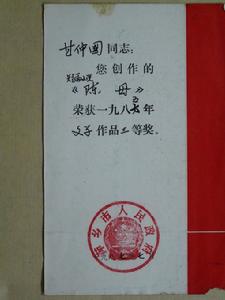 甘仲国同志：
您创作的
《陈母》
荣获一九八五年
文学作品三等奖。
新乡市人民政府